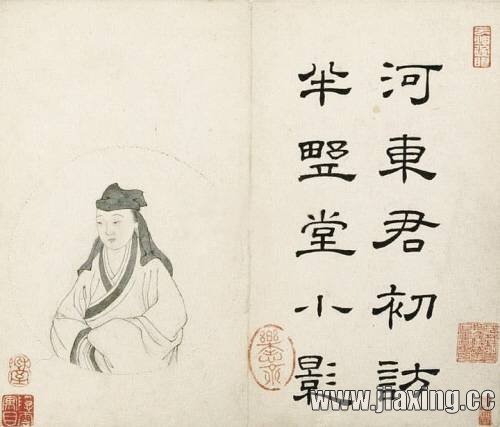 河東君初訪
半野堂小影
www.jiaxing.cc